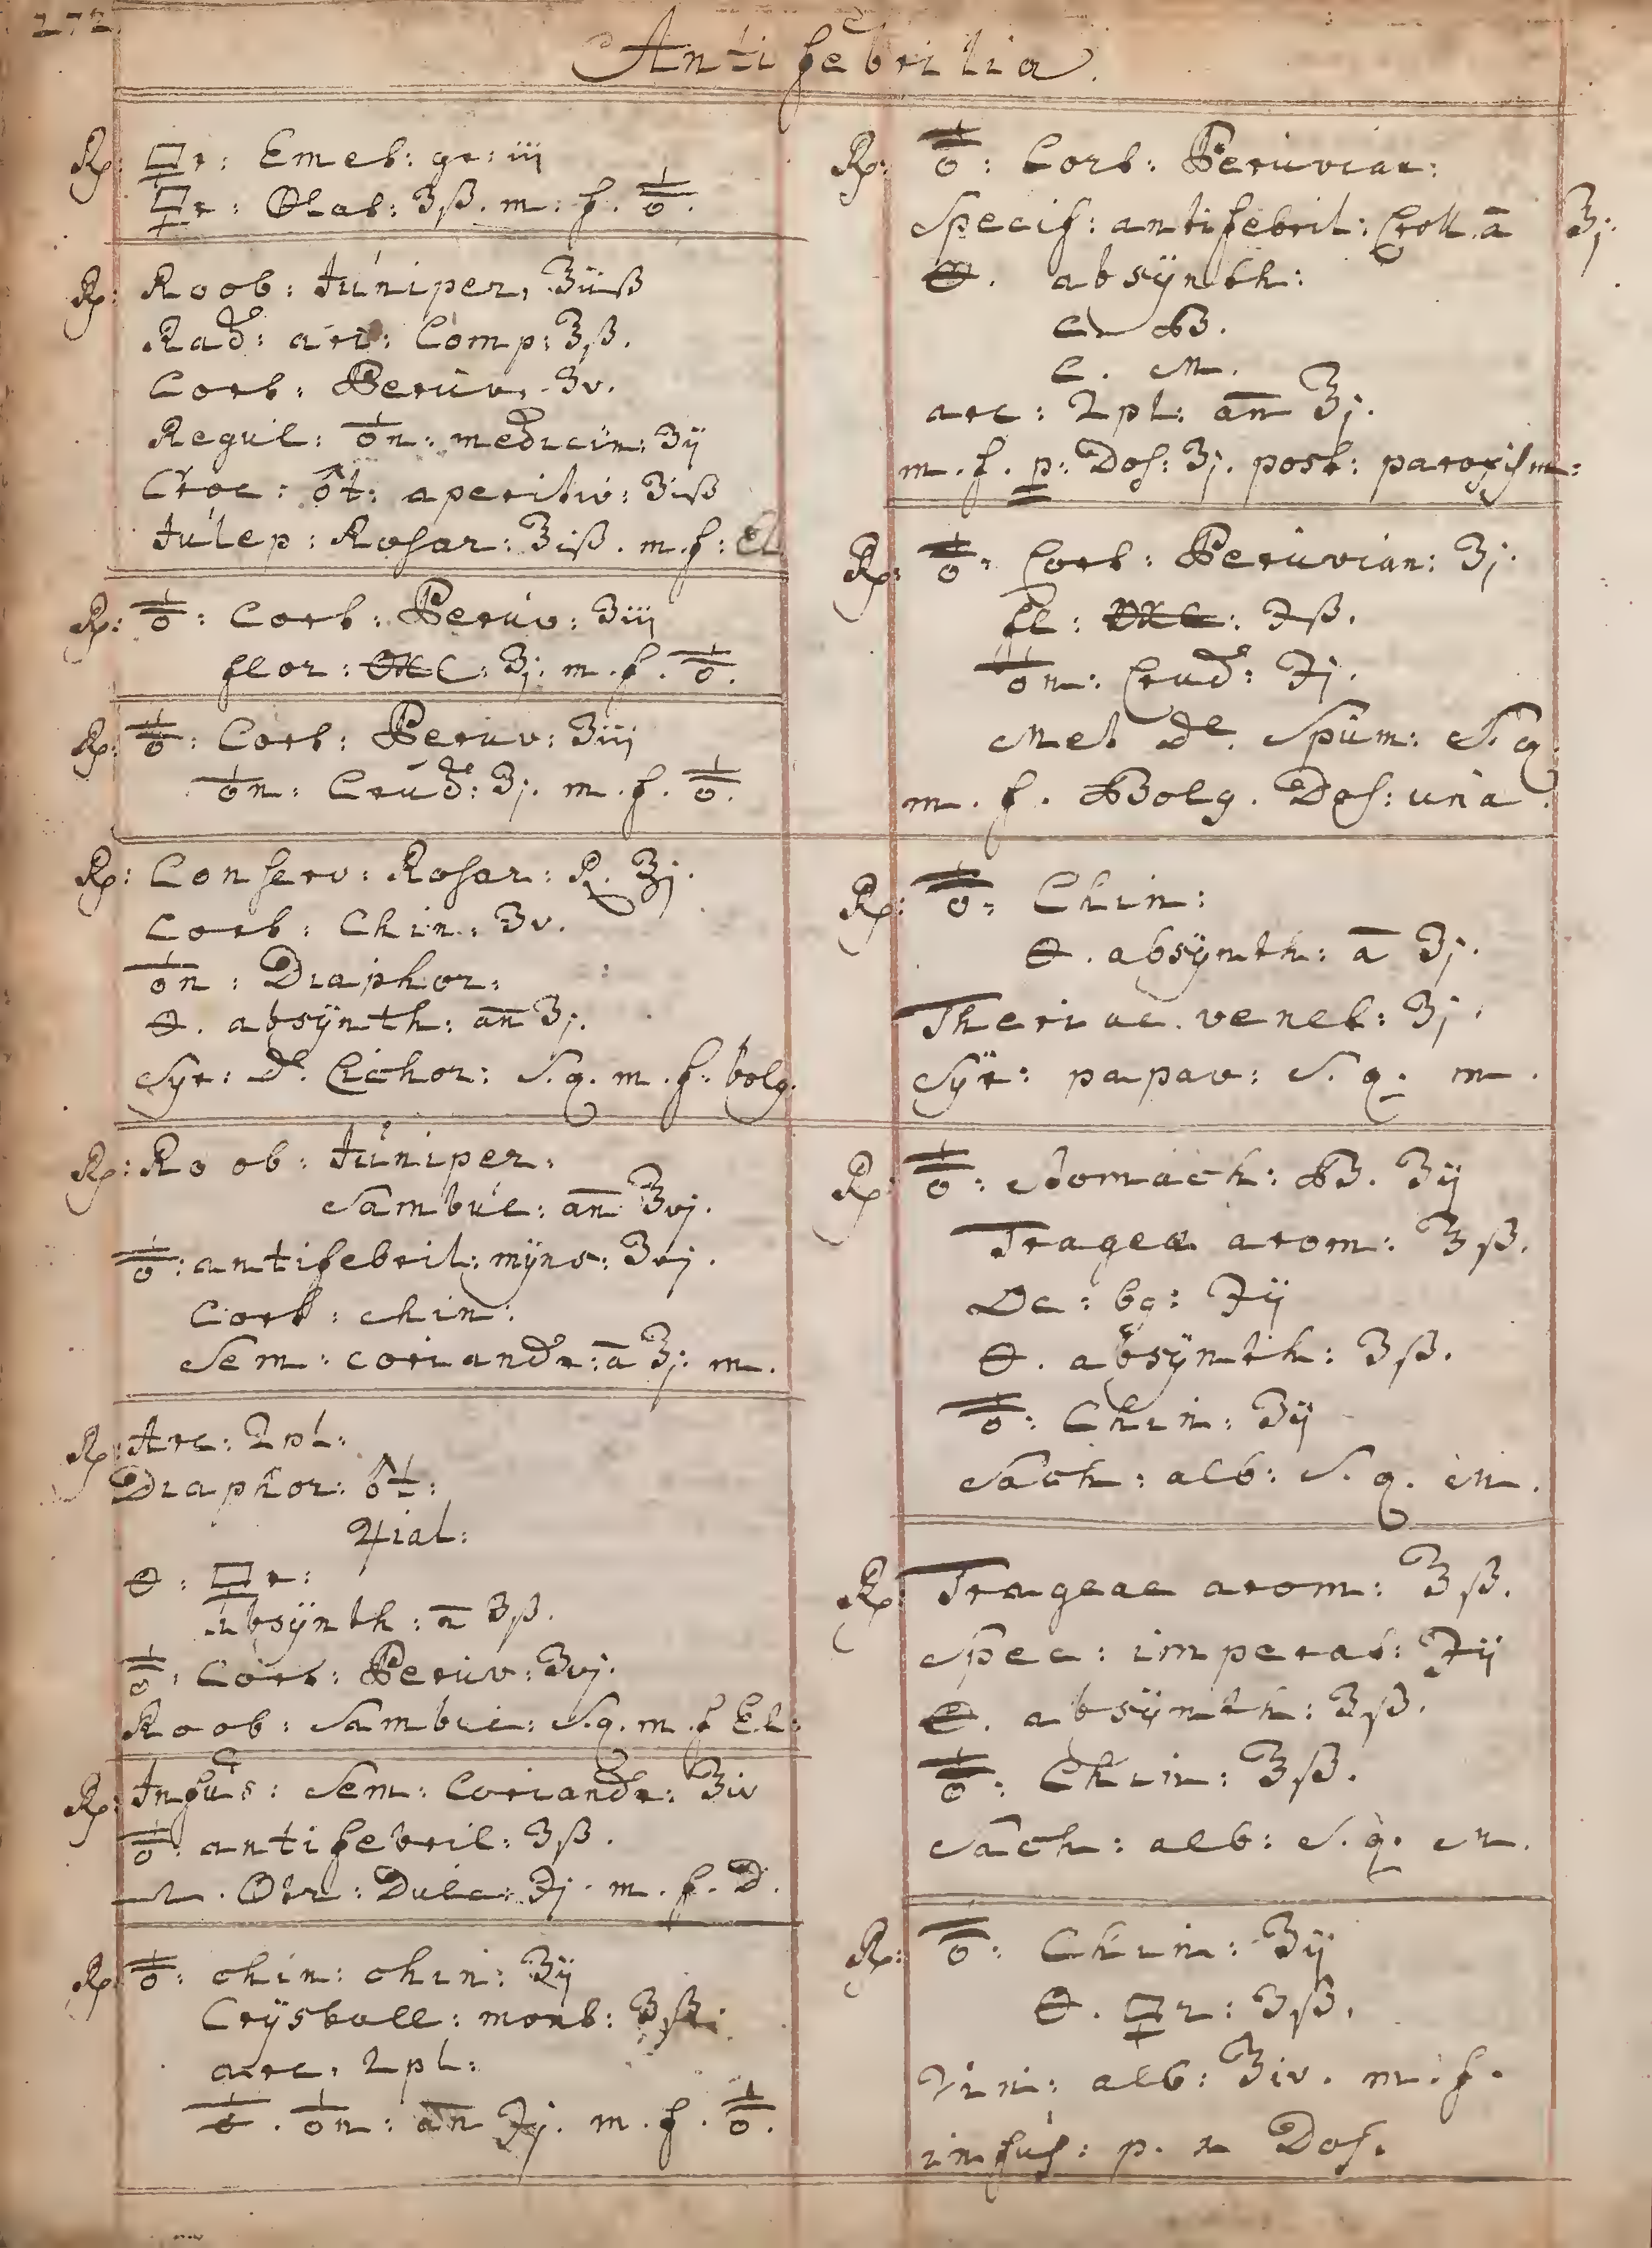 272.
Antifebrilia.
Rp: 🜿r: Emet: gr: iij
🜿r: Olat: ʒß. m: f. ♁̳.
Rp: Roob: Juniper. ℥iiß
Rad: ari: Comp: ʒß.
Cort: Peruv. ʒv.
Regul: ♁n: medicin: ʒij
Croc: ♂t: aperitiv: ʒiß
Julep: Rosar: ℥iß. m. f: El.
Rp: ♁̳: Cort: Peruv: ʒiij
flor: 🜹C: ʒj. m. f. ♁̳.
Rp: ♁̳: Cort: Peruv: ʒiij
♁n: Crud: ʒj. m. f. ♁̳.
Rp: Conserv: Rosar: R. ℥j.
Cort: Chin: ʒv.
♁n: Diaphor:
🜔. absÿnth: an ʒj.
Syr: d. Cichor: S. q. m. f: bolg.
Rp: Roob: Juniper:
Sambuc: an ʒvj.
♁̳: antifebril: mÿns: ʒvj.
Cort: chin:
Sem: coriandr: a ʒj. m.
Rp: Arc: 2pl:
Diaphor: ♂t:
♃ial:
🜔: 🜿r:
absÿnth: a ʒß.
♁̳: Cort: Peruv: ʒvj.
Roob: Sambuc: S. q. m. f El:
Rp: Infus: Sem: Coriandr: ℥iv
♁̳: antifebril: ʒß.
Otr: Dulc: ℈j. m. f. D.
Rp: ♁̳: chin: chin: ʒij
Crÿstall: mont: ʒß.
arc. 2pl:
♁n: an ℈j. m. f. ♁̳.
Rp: ♁̳: Cort: Peruvian:
Specif: antifebril: Croll. a ʒj.
🜔. absÿnth:
C B.
C. M.
arc: 2pl: an ʒj.
m. f. p: Dos: ʒj. post: paroxism:
Rp: ♁̳: Cort: Peruvian: ʒj.
fl: 🜹C: ℈ß.
♁n: Crud: ℈j.
Mel de. Spum: S. q.
m. f. Bolg. Dos: una.
Rp: ♁̳: Chin:
🜔. absÿnth: a ʒj.
Theriac. venet: ʒj.
Sÿr: papav: S. q. m.
Rp: ♁̳: Stomach: B. ʒij
Trageæ arom: ℥ß.
Dc: bg: ℈ij
🜔. absÿnth: ʒß.
♁̳: Chin: ʒij
Sach: alb: S. q. m.
Rp: Trageae arom: ℥ß.
Spec: imperat: ℈ij
🜔. absÿnth: ʒß.
♁̳: Chin: ℥ß.
Sach: alb: S. q. m.
Rp: ♁̳: Chin: ʒij
🜔. 🜿r: ʒß.
Vin: alb: ℥iv. m. f.
infus: p. n Dos.